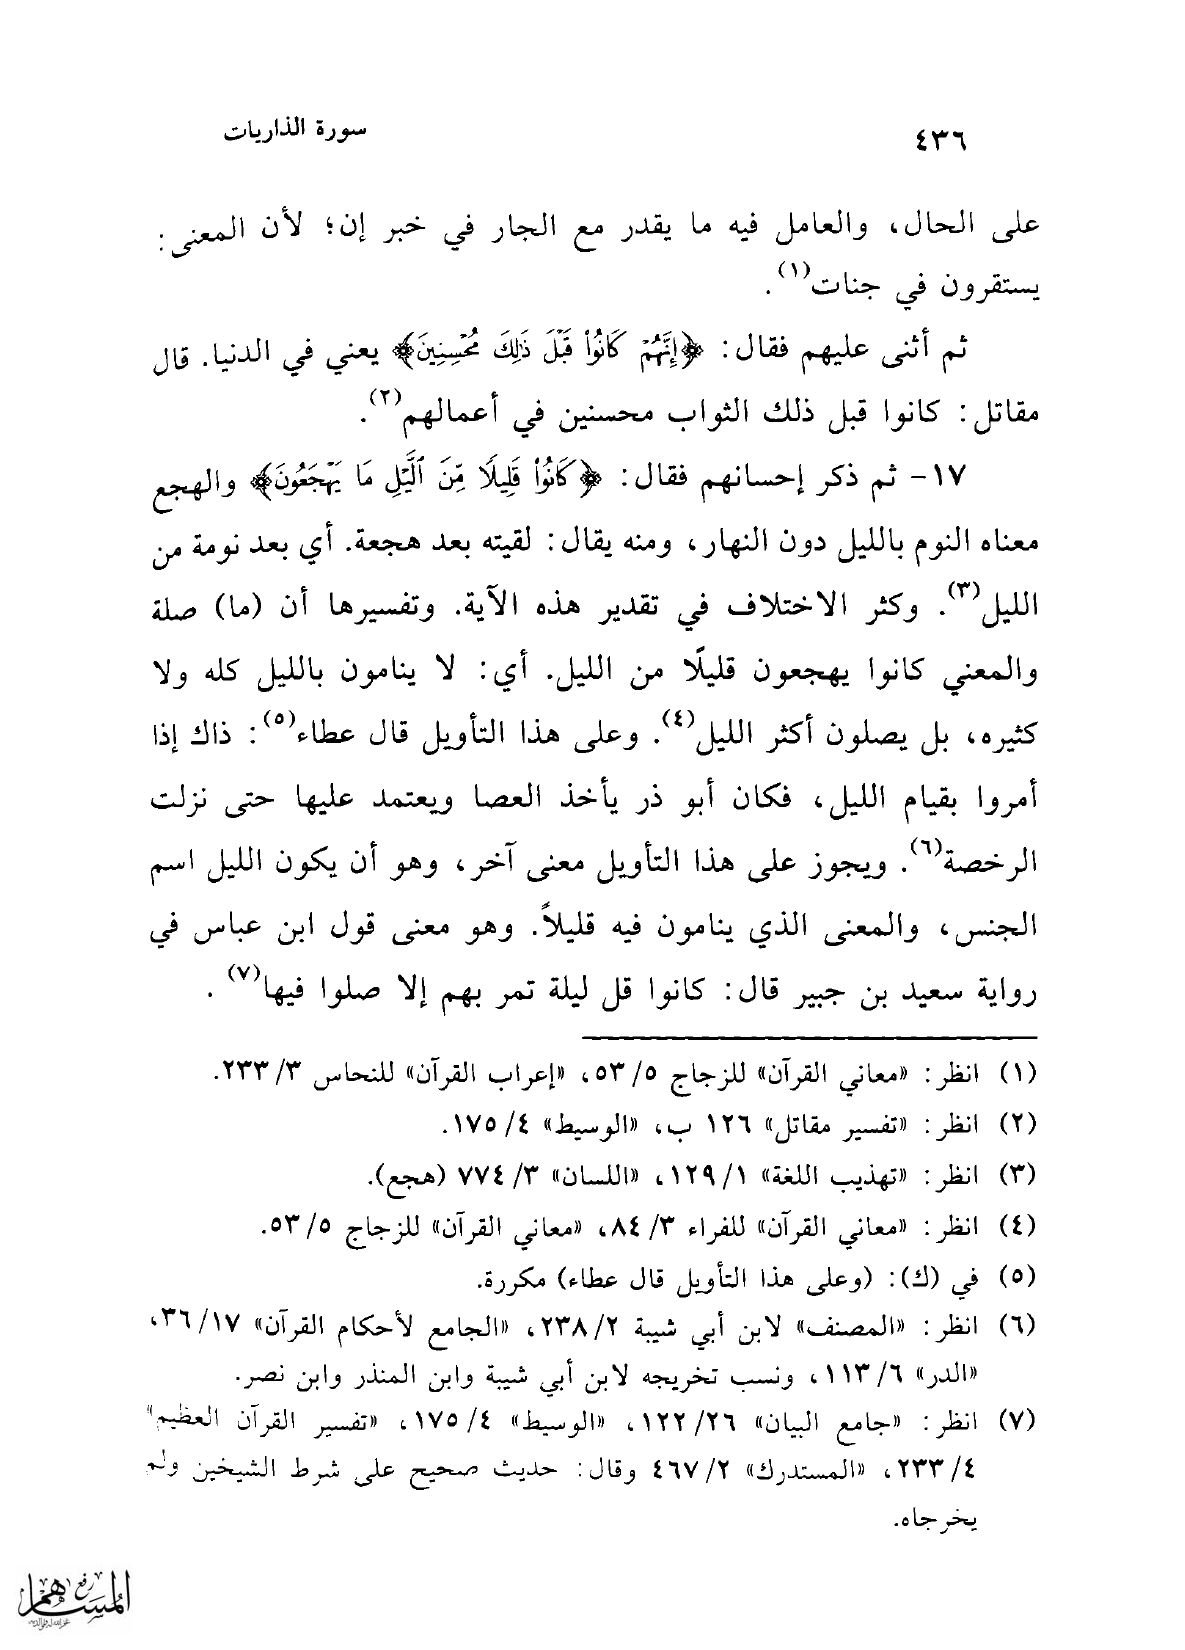 ٤٣٦
سورة الذاريات
على الحال، والعامل فيه ما يقدر مع الجار في خبر إن؛ لأن المعنى:
يستقرون في جنات(١).
ثم أثنى عليهم فقال: ﴿إِنَّهُمْ كَانُوا۟ قَبْلَ ذَٰلِكَ مُحْسِنِينَ﴾ يعني في الدنيا. قال
مقاتل: كانوا قبل ذلك الثواب محسنين في أعمالهم(٢).
١٧- ثم ذكر إحسانهم فقال: ﴿كَانُوا۟ قَلِيلًا مِّنَ ٱلَّيْلِ مَا يَهْجَعُونَ﴾ والهجع
معناه النوم بالليل دون النهار، ومنه يقال: لقيته بعد هجعة. أي بعد نومة من
الليل(٣). وكثر الاختلاف في تقدير هذه الآية. وتفسيرها أن (ما) صلة
والمعني كانوا يهجعون قليلًا من الليل. أي: لا ينامون بالليل كله ولا
كثيره، بل يصلون أكثر الليل(٤). وعلى هذا التأويل قال عطاء(٥): ذاك إذا
أمروا بقيام الليل، فكان أبو ذر يأخذ العصا ويعتمد عليها حتى نزلت
الرخصة(٦). ويجوز على هذا التأويل معنى آخر، وهو أن يكون الليل اسم
الجنس، والمعنى الذي ينامون فيه قليلاً. وهو معنى قول ابن عباس في
رواية سعيد بن جبير قال: كانوا قل ليلة تمر بهم إلا صلوا فيها(٧).
(١) انظر: «معاني القرآن» للزجاج ٥/ ٥٣، «إعراب القرآن» للنحاس ٣/ ٢٣٣.
(٢) انظر: «تفسير مقاتل» ١٢٦ ب، «الوسيط» ٤/ ١٧٥.
(٣) انظر: «تهذيب اللغة» ١/ ١٢٩، «اللسان» ٣/ ٧٧٤ (هجع).
(٤) انظر: «معاني القرآن» للفراء ٣/ ٨٤، «معاني القرآن» للزجاج ٥/ ٥٣.
(٥) في (ك): (وعلى هذا التأويل قال عطاء) مكررة.
(٦) انظر: «المصنف» لابن أبي شيبة ٢/ ٢٣٨، «الجامع لأحكام القرآن» ١٧/ ٣٦،
«الدر» ٦/ ١١٣، ونسب تخريجه لابن أبي شيبة وابن المنذر وابن نصر.
(٧) انظر: «جامع البيان» ٢٦/ ١٢٢، «الوسيط» ٤/ ١٧٥، «تفسير القرآن العظيم»
٤/ ٢٣٣، «المستدرك» ٢/ ٤٦٧ وقال: حديث صحيح على شرط الشيخين ولم
يخرجاه.
رفع
المساهم